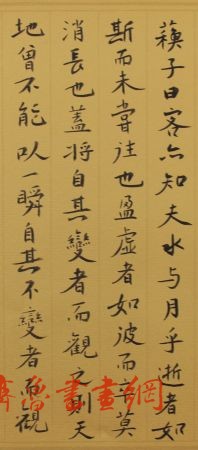 蘓子曰客亦知夫水与月乎逝者如
斯而未甞往也盈虚者如彼而卒莫
消長也蓋将自其變者而觀之則天
地曾不能以一瞬自其不變者而觀
齊魯書畫網